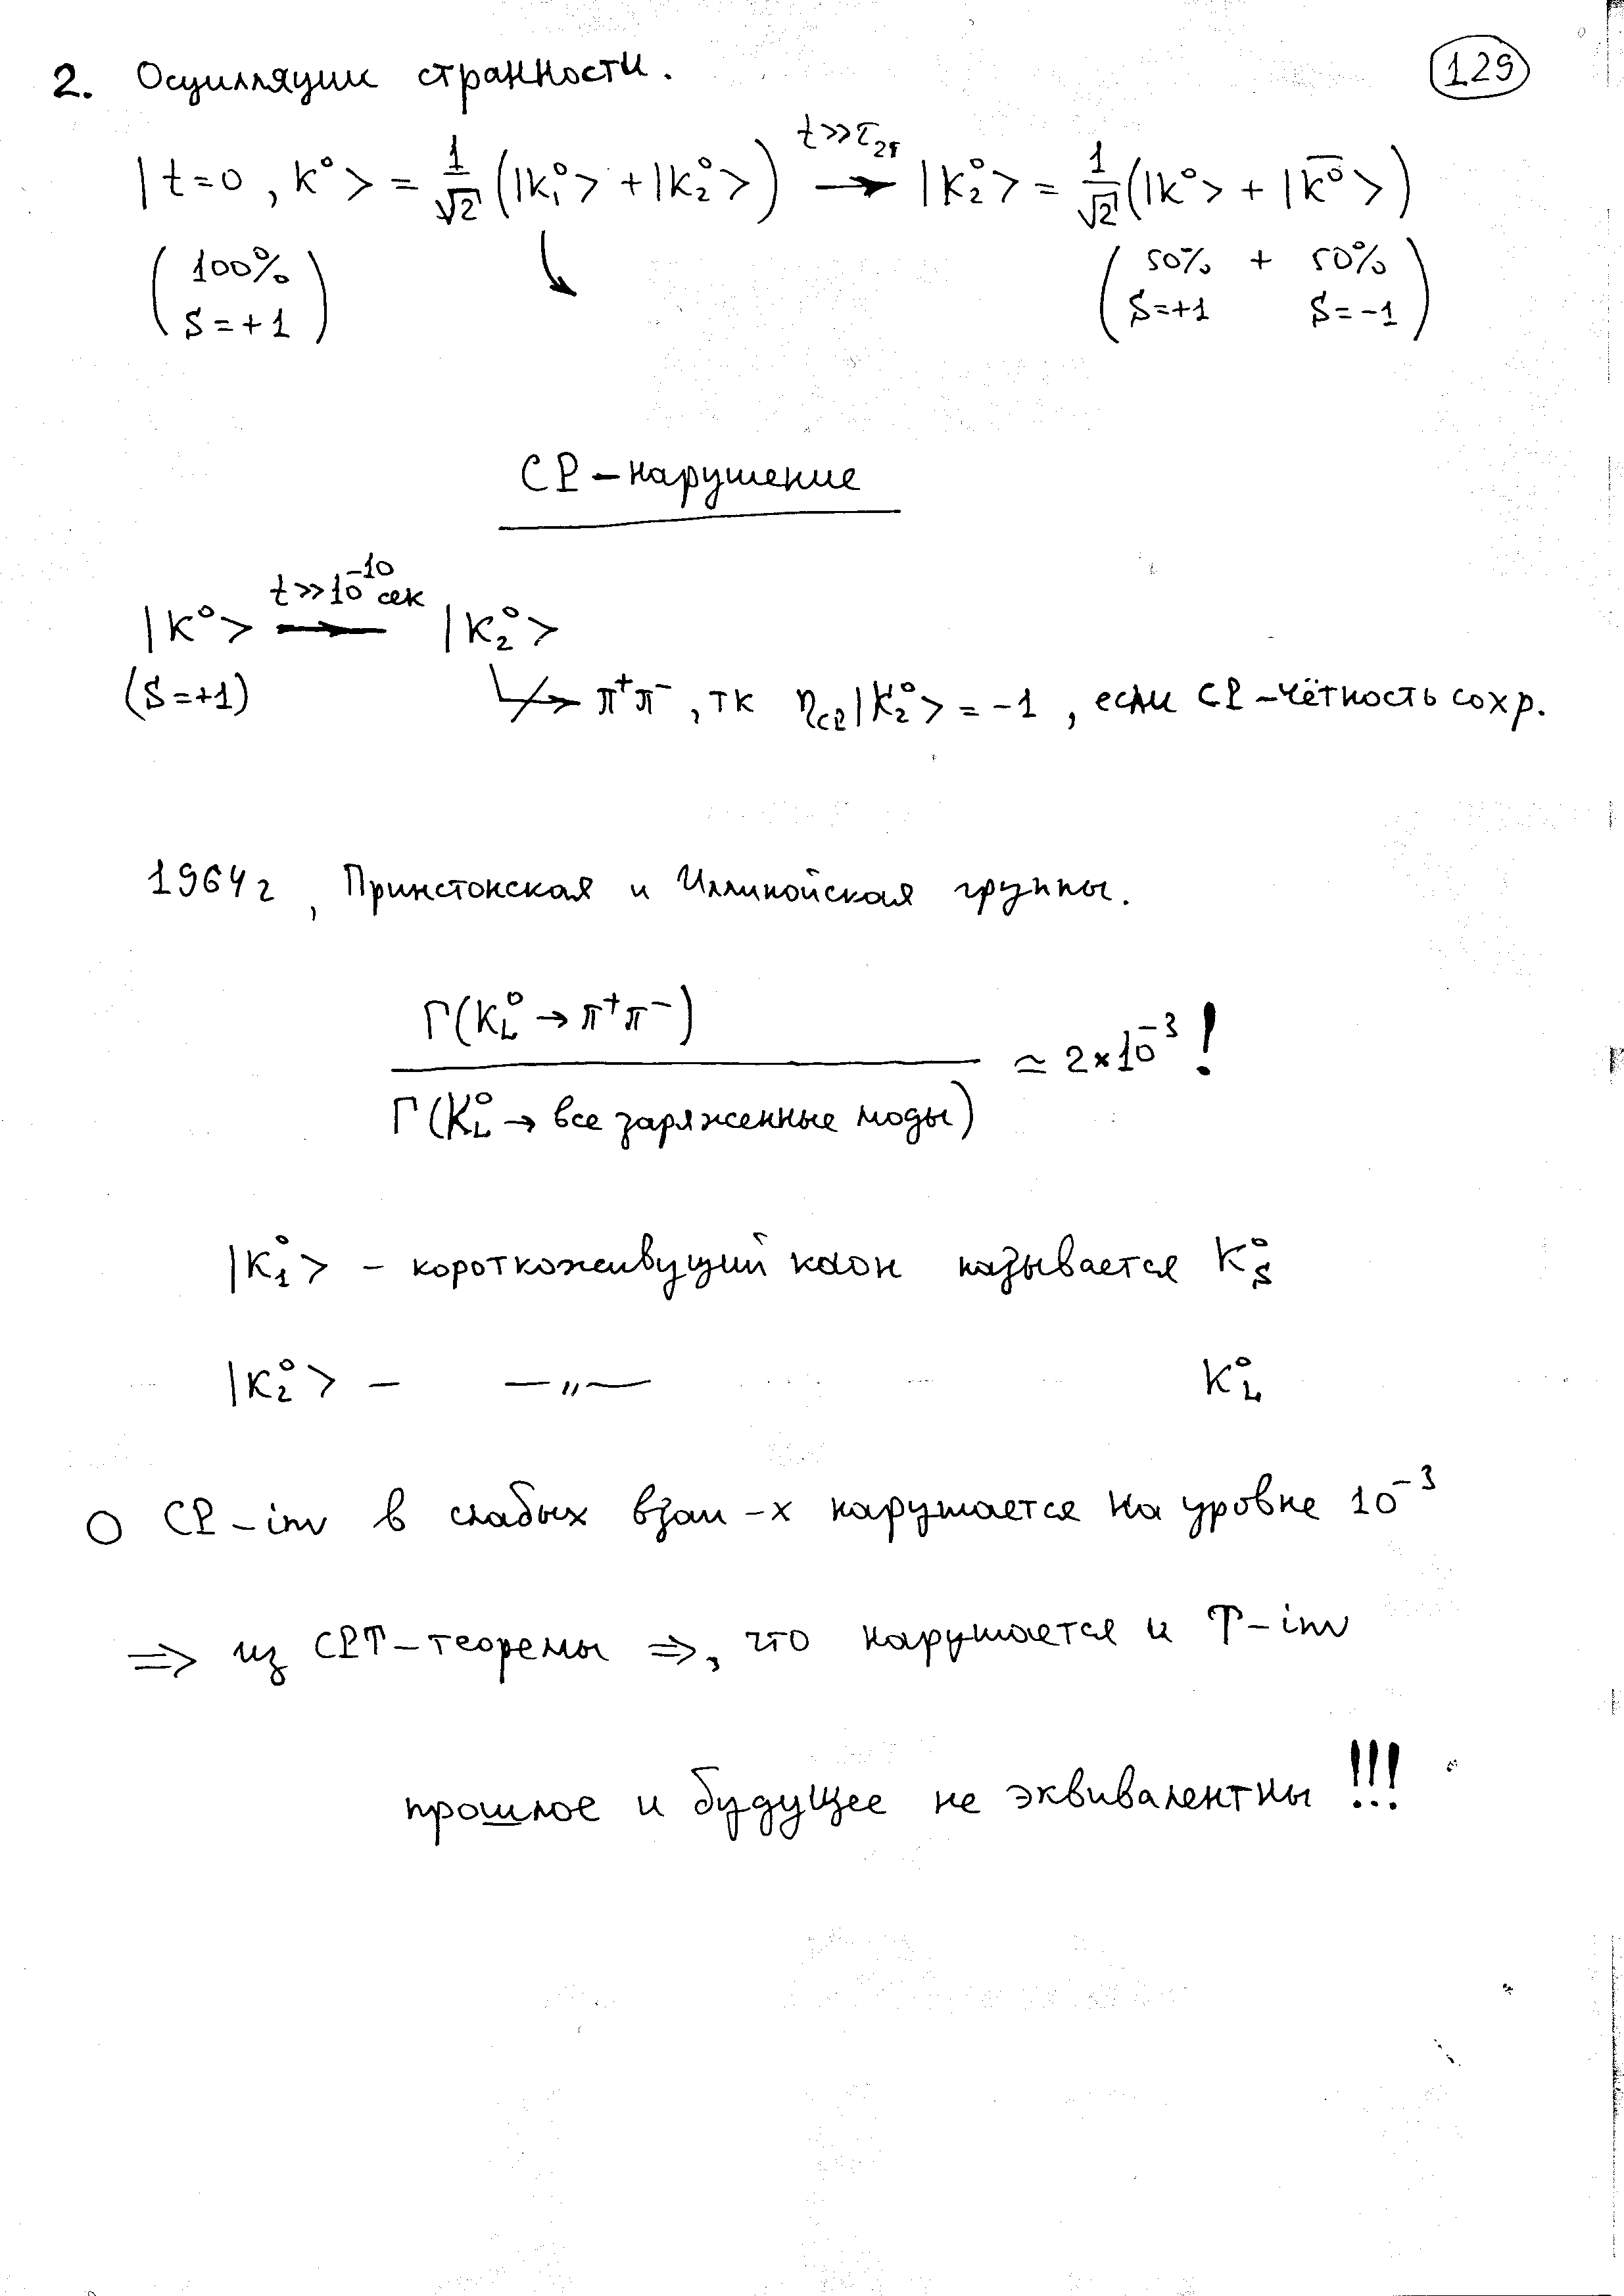 129
2. Осцилляции странности.
|t=0, K⁰> = 1/√2 (|K₁⁰> + |K₂⁰>) →(t≫τ₂π) |K₂⁰> = 1/√2 (|K⁰> + |K̅⁰>)
(100% S=+1) (50% S=+1 + 50% S=-1)
CP-нарушение
|K⁰> →(t≫10⁻¹⁰ сек) |K₂⁰>
(S=+1) ↛ π⁺π⁻, тк η_CP|K₂⁰> = -1, если CP-чётность сохр.
1964г, Принстонская и Иллинойская группы.
Γ(K_L⁰ → π⁺π⁻)
≃ 2×10⁻³!
Γ(K_L⁰ → все заряженные моды)
|K₁⁰> – короткоживущий каон называется K_S⁰
|K₂⁰> – —〃— K_L⁰
○ CP-inv в слабых взаи-х нарушается на уровне 10⁻³
⇒ из CPT-теоремы ⇒, что нарушается и T-inv
прошлое и будущее не эквивалентны !!!